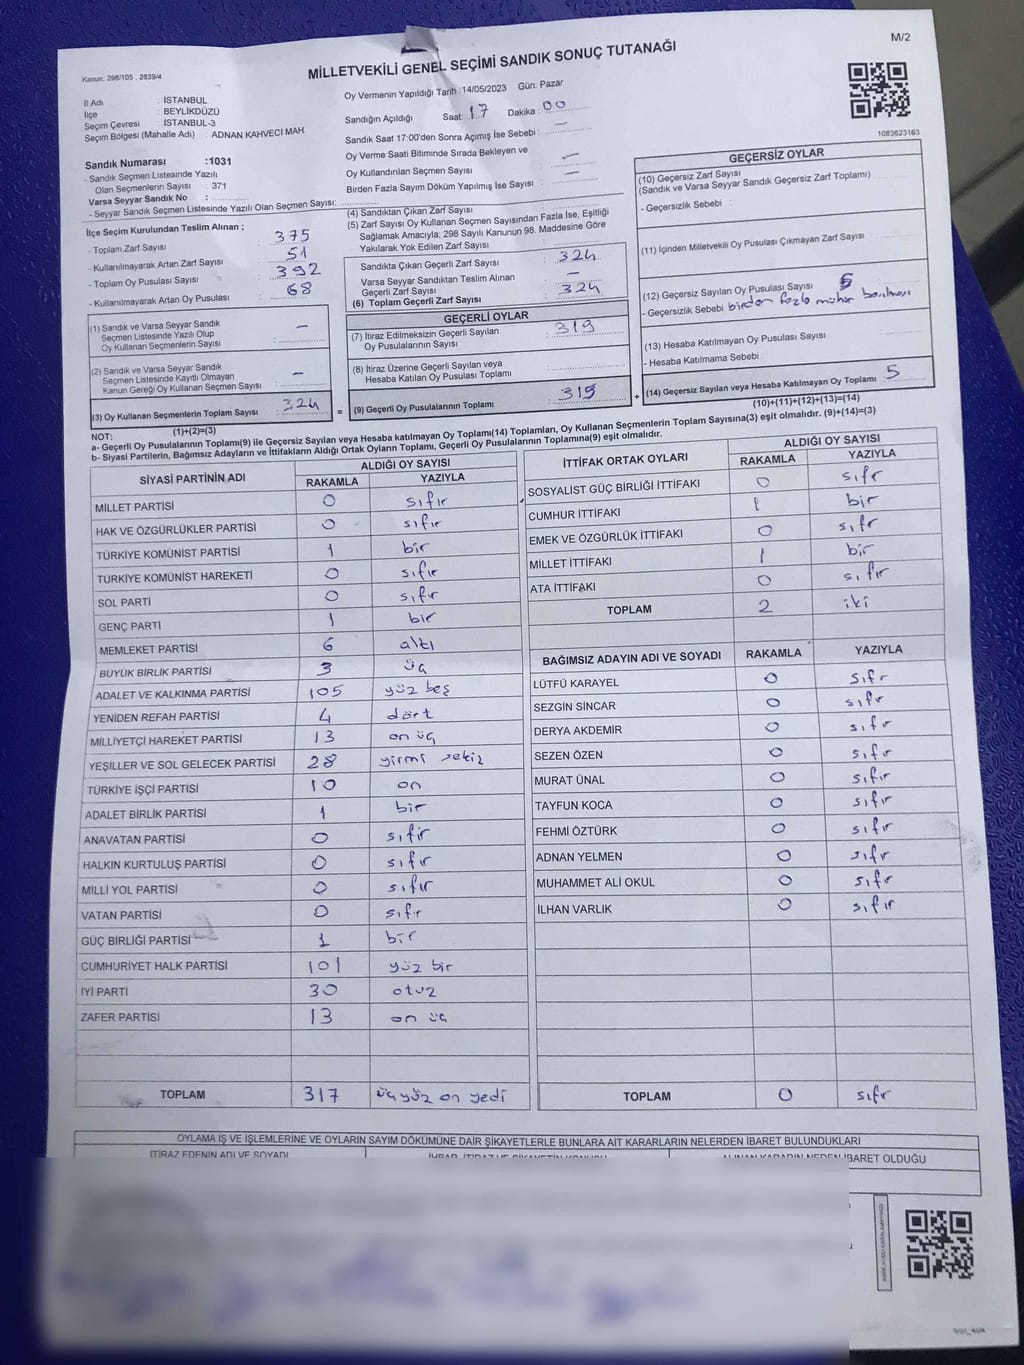 M/2
MİLLETVEKİLİ GENEL SEÇİMİ SANDIK SONUÇ TUTANAĞI
Kanun: 298/105 , 2839/4
İl Adı : İSTANBUL
İlçe : BEYLİKDÜZÜ
Seçim Çevresi : İSTANBUL-3
Seçim Bölgesi (Mahalle Adı) : ADNAN KAHVECİ MAH
Sandık Numarası :1031
- Sandık Seçmen Listesinde Yazılı
Olan Seçmenlerin Sayısı : 371
Varsa Seyyar Sandık No :
- Seyyar Sandık Seçmen Listesinde Yazılı Olan Seçmen Sayısı:
Oy Vermenin Yapıldığı Tarih : 14/05/2023 Gün: Pazar
Sandığın Açıldığı Saat: 17 Dakika: 00
Sandık Saat 17:00'den Sonra Açımış İse Sebebi : —
Oy Verme Saati Bitiminde Sırada Bekleyen ve
Oy Kullandırılan Seçmen Sayısı : —
Birden Fazla Sayım Döküm Yapılmış İse Sayısı : —
1083623163
İlçe Seçim Kurulundan Teslim Alınan ;
- Toplam Zarf Sayısı : 375
- Kullanılmayarak Artan Zarf Sayısı : 51
- Toplam Oy Pusulası Sayısı : 392
- Kullanılmayarak Artan Oy Pusulası : 68
(1) Sandık ve Varsa Seyyar Sandık
Seçmen Listesinde Yazılı Olup
Oy Kullanan Seçmenlerin Sayısı : —
(2) Sandık ve Varsa Seyyar Sandık
Seçmen Listesinde Kayıtlı Olmayan
Kanun Gereği Oy Kullanan Seçmen Sayısı : —
(3) Oy Kullanan Seçmenlerin Toplam Sayısı : 324
(1)+(2)=(3)
(4) Sandıktan Çıkan Zarf Sayısı
(5) Zarf Sayısı Oy Kullanan Seçmen Sayısından Fazla İse, Eşitliği
Sağlamak Amacıyla; 298 Sayılı Kanunun 98. Maddesine Göre
Yakılarak Yok Edilen Zarf Sayısı :
Sandıkta Çıkan Geçerli Zarf Sayısı : 324
Varsa Seyyar Sandıktan Teslim Alınan
Geçerli Zarf Sayısı : —
(6) Toplam Geçerli Zarf Sayısı : 324
GEÇERLİ OYLAR
(7) İtiraz Edilmeksizin Geçerli Sayılan
Oy Pusulalarının Sayısı : 319
(8) İtiraz Üzerine Geçerli Sayılan veya
Hesaba Katılan Oy Pusulası Toplamı :
= (9) Geçerli Oy Pusulalarının Toplamı : 319 +
GEÇERSİZ OYLAR
(10) Geçersiz Zarf Sayısı
(Sandık ve Varsa Seyyar Sandık Geçersiz Zarf Toplamı) :
- Geçersizlik Sebebi :
(11) İçinden Milletvekili Oy Pusulası Çıkmayan Zarf Sayısı :
(12) Geçersiz Sayılan Oy Pusulası Sayısı : 5
- Geçersizlik Sebebi birden fazla mühür basılması
(13) Hesaba Katılmayan Oy Pusulası Sayısı :
- Hesaba Katılmama Sebebi :
(14) Geçersiz Sayılan veya Hesaba Katılmayan Oy Toplamı : 5
(10)+(11)+(12)+(13)=(14)
NOT:
a- Geçerli Oy Pusulalarının Toplamı(9) ile Geçersiz Sayılan veya Hesaba katılmayan Oy Toplamı(14) Toplamları, Oy Kullanan Seçmenlerin Toplam Sayısına(3) eşit olmalıdır. (9)+(14)=(3)
b- Siyasi Partilerin, Bağımsız Adayların ve İttifakların Aldığı Ortak Oyların Toplamı, Geçerli Oy Pusulalarının Toplamına(9) eşit olmalıdır.
SİYASİ PARTİNİN ADI ALDIĞI OY SAYISI
RAKAMLA YAZIYLA
MİLLET PARTİSİ 0 sıfır
HAK VE ÖZGÜRLÜKLER PARTİSİ 0 sıfır
TÜRKİYE KOMÜNİST PARTİSİ 1 bir
TÜRKİYE KOMÜNİST HAREKETİ 0 sıfır
SOL PARTİ 0 sıfır
GENÇ PARTİ 1 bir
MEMLEKET PARTİSİ 6 altı
BÜYÜK BİRLİK PARTİSİ 3 üç
ADALET VE KALKINMA PARTİSİ 105 yüz beş
YENİDEN REFAH PARTİSİ 4 dört
MİLLİYETÇİ HAREKET PARTİSİ 13 on üç
YEŞİLLER VE SOL GELECEK PARTİSİ 28 yirmi sekiz
TÜRKİYE İŞÇİ PARTİSİ 10 on
ADALET BİRLİK PARTİSİ 1 bir
ANAVATAN PARTİSİ 0 sıfır
HALKIN KURTULUŞ PARTİSİ 0 sıfır
MİLLİ YOL PARTİSİ 0 sıfır
VATAN PARTİSİ 0 sıfır
GÜÇ BİRLİĞİ PARTİSİ 1 bir
CUMHURİYET HALK PARTİSİ 101 yüz bir
İYİ PARTİ 30 otuz
ZAFER PARTİSİ 13 on üç
TOPLAM 317 üçyüz on yedi
İTTİFAK ORTAK OYLARI ALDIĞI OY SAYISI
RAKAMLA YAZIYLA
SOSYALİST GÜÇ BİRLİĞİ İTTİFAKI 0 sıfır
CUMHUR İTTİFAKI 1 bir
EMEK VE ÖZGÜRLÜK İTTİFAKI 0 sıfır
MİLLET İTTİFAKI 1 bir
ATA İTTİFAKI 0 sıfır
TOPLAM 2 iki
BAĞIMSIZ ADAYIN ADI VE SOYADI RAKAMLA YAZIYLA
LÜTFÜ KARAYEL 0 sıfır
SEZGİN SİNCAR 0 sıfır
DERYA AKDEMİR 0 sıfır
SEZEN ÖZEN 0 sıfır
MURAT ÜNAL 0 sıfır
TAYFUN KOCA 0 sıfır
FEHMİ ÖZTÜRK 0 sıfır
ADNAN YELMEN 0 sıfır
MUHAMMET ALİ OKUL 0 sıfır
İLHAN VARLIK 0 sıfır
TOPLAM 0 sıfır
OYLAMA İŞ VE İŞLEMLERİNE VE OYLARIN SAYIM DÖKÜMÜNE DAİR ŞİKAYETLERLE BUNLARA AİT KARARLARIN NELERDEN İBARET BULUNDUKLARI
İTİRAZ EDENİN ADI VE SOYADI ALINAN KARARIN NEDEN İBARET OLDUĞU